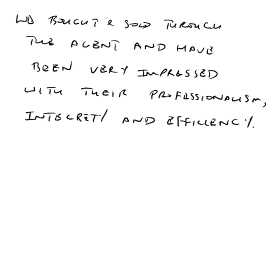 WE BOUGHT & SOLD THROUGH
THE AGENT AND HAVE
BEEN VERY IMPRESSED
WITH THEIR PROFESSIONALISM,
INTEGRITY AND EFFICIENCY.